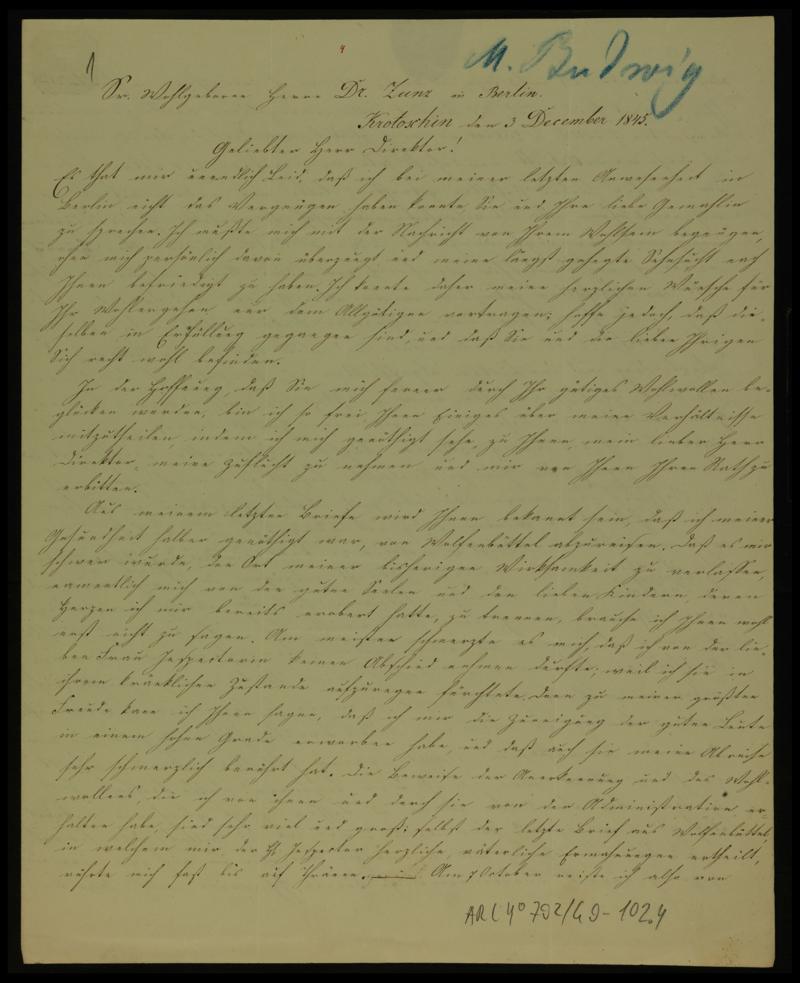 1
4
M. Budwig
Sr. Wohlgeboren Herrn Dr. Zunz in Berlin.
Krotoschin den 3 December 1845.
Geliebter Herr Direktor!
Es that mir unendlich Leid, daß ich bei meiner letzten Anwesenheit in
Berlin nicht das Vergnügen haben konnte, Sie und Ihre liebe Gemahlin
zu sprechen. Ich mußte mich mit der Nachricht von Ihrem Wohlsein begnügen,
ohne mich persönlich davon überzeugt und meine längst gehegte Sehnsucht nach
Ihnen befriedigt zu haben. Ich konnte daher meine herzlichen Wünsche für
Ihr Wohlergehen nur dem Allgütigen vortragen; hoffe jedoch, daß die-
selben in Erfüllung gegangen sind, und daß Sie und die lieben Ihrigen
Sich recht wohl befinden.
In der Hoffnung, daß Sie mich ferner durch Ihr gütiges Wohlwollen be-
glücken werden, bin ich so frei Ihnen Einiges über meine Verhältnisse
mitzutheilen, indem ich mich genöthigt sehe, zu Ihnen, mein lieber Herr
Direktor, meine Zuflucht zu nehmen und mir von Ihnen Ihren Rath zu
erbitten.
Aus meinem letzten Briefe wird Ihnen bekannt sein, daß ich meiner
Gesundheit halber genöthigt war, von Wolfenbüttel abzureisen. Daß es mir
schwer wurde, den Ort meiner bisherigen Wirksamkeit zu verlassen,
namentlich mich von den guten Seelen und den lieben Kindern, deren
Herzen ich mir bereits erobert hatte, zu trennen, brauche ich Ihnen wohl
erst nicht zu sagen. Am meisten schmerzte es mich, daß ich von der lie-
ben Frau Inspectorin keinen Abschied nehmen durfte, weil ich sie in
ihrem kränklichen Zustande aufzuregen fürchtete. Denn zu meiner größten
Freude kann ich Ihnen sagen, daß ich mir die Zuneigung der guten Leute
in einem hohen Grade erworben habe, und daß auch sie meine Abreise
sehr schmerzlich berührt hat. Die Beweise der Anerkennung und des Wohl-
wollens, die ich von ihnen und durch sie von der Administration er-
halten habe, sind sehr viel und groß; selbst der letzte Brief aus Wolfenbüttel,
in welchem mir der H. Inspector herzliche, väterliche Ermahnungen ertheilt,
rührte mich fast bis auf Thränen. Am 7 October reiste ich also von
ARC 4° 792/G9-102.4